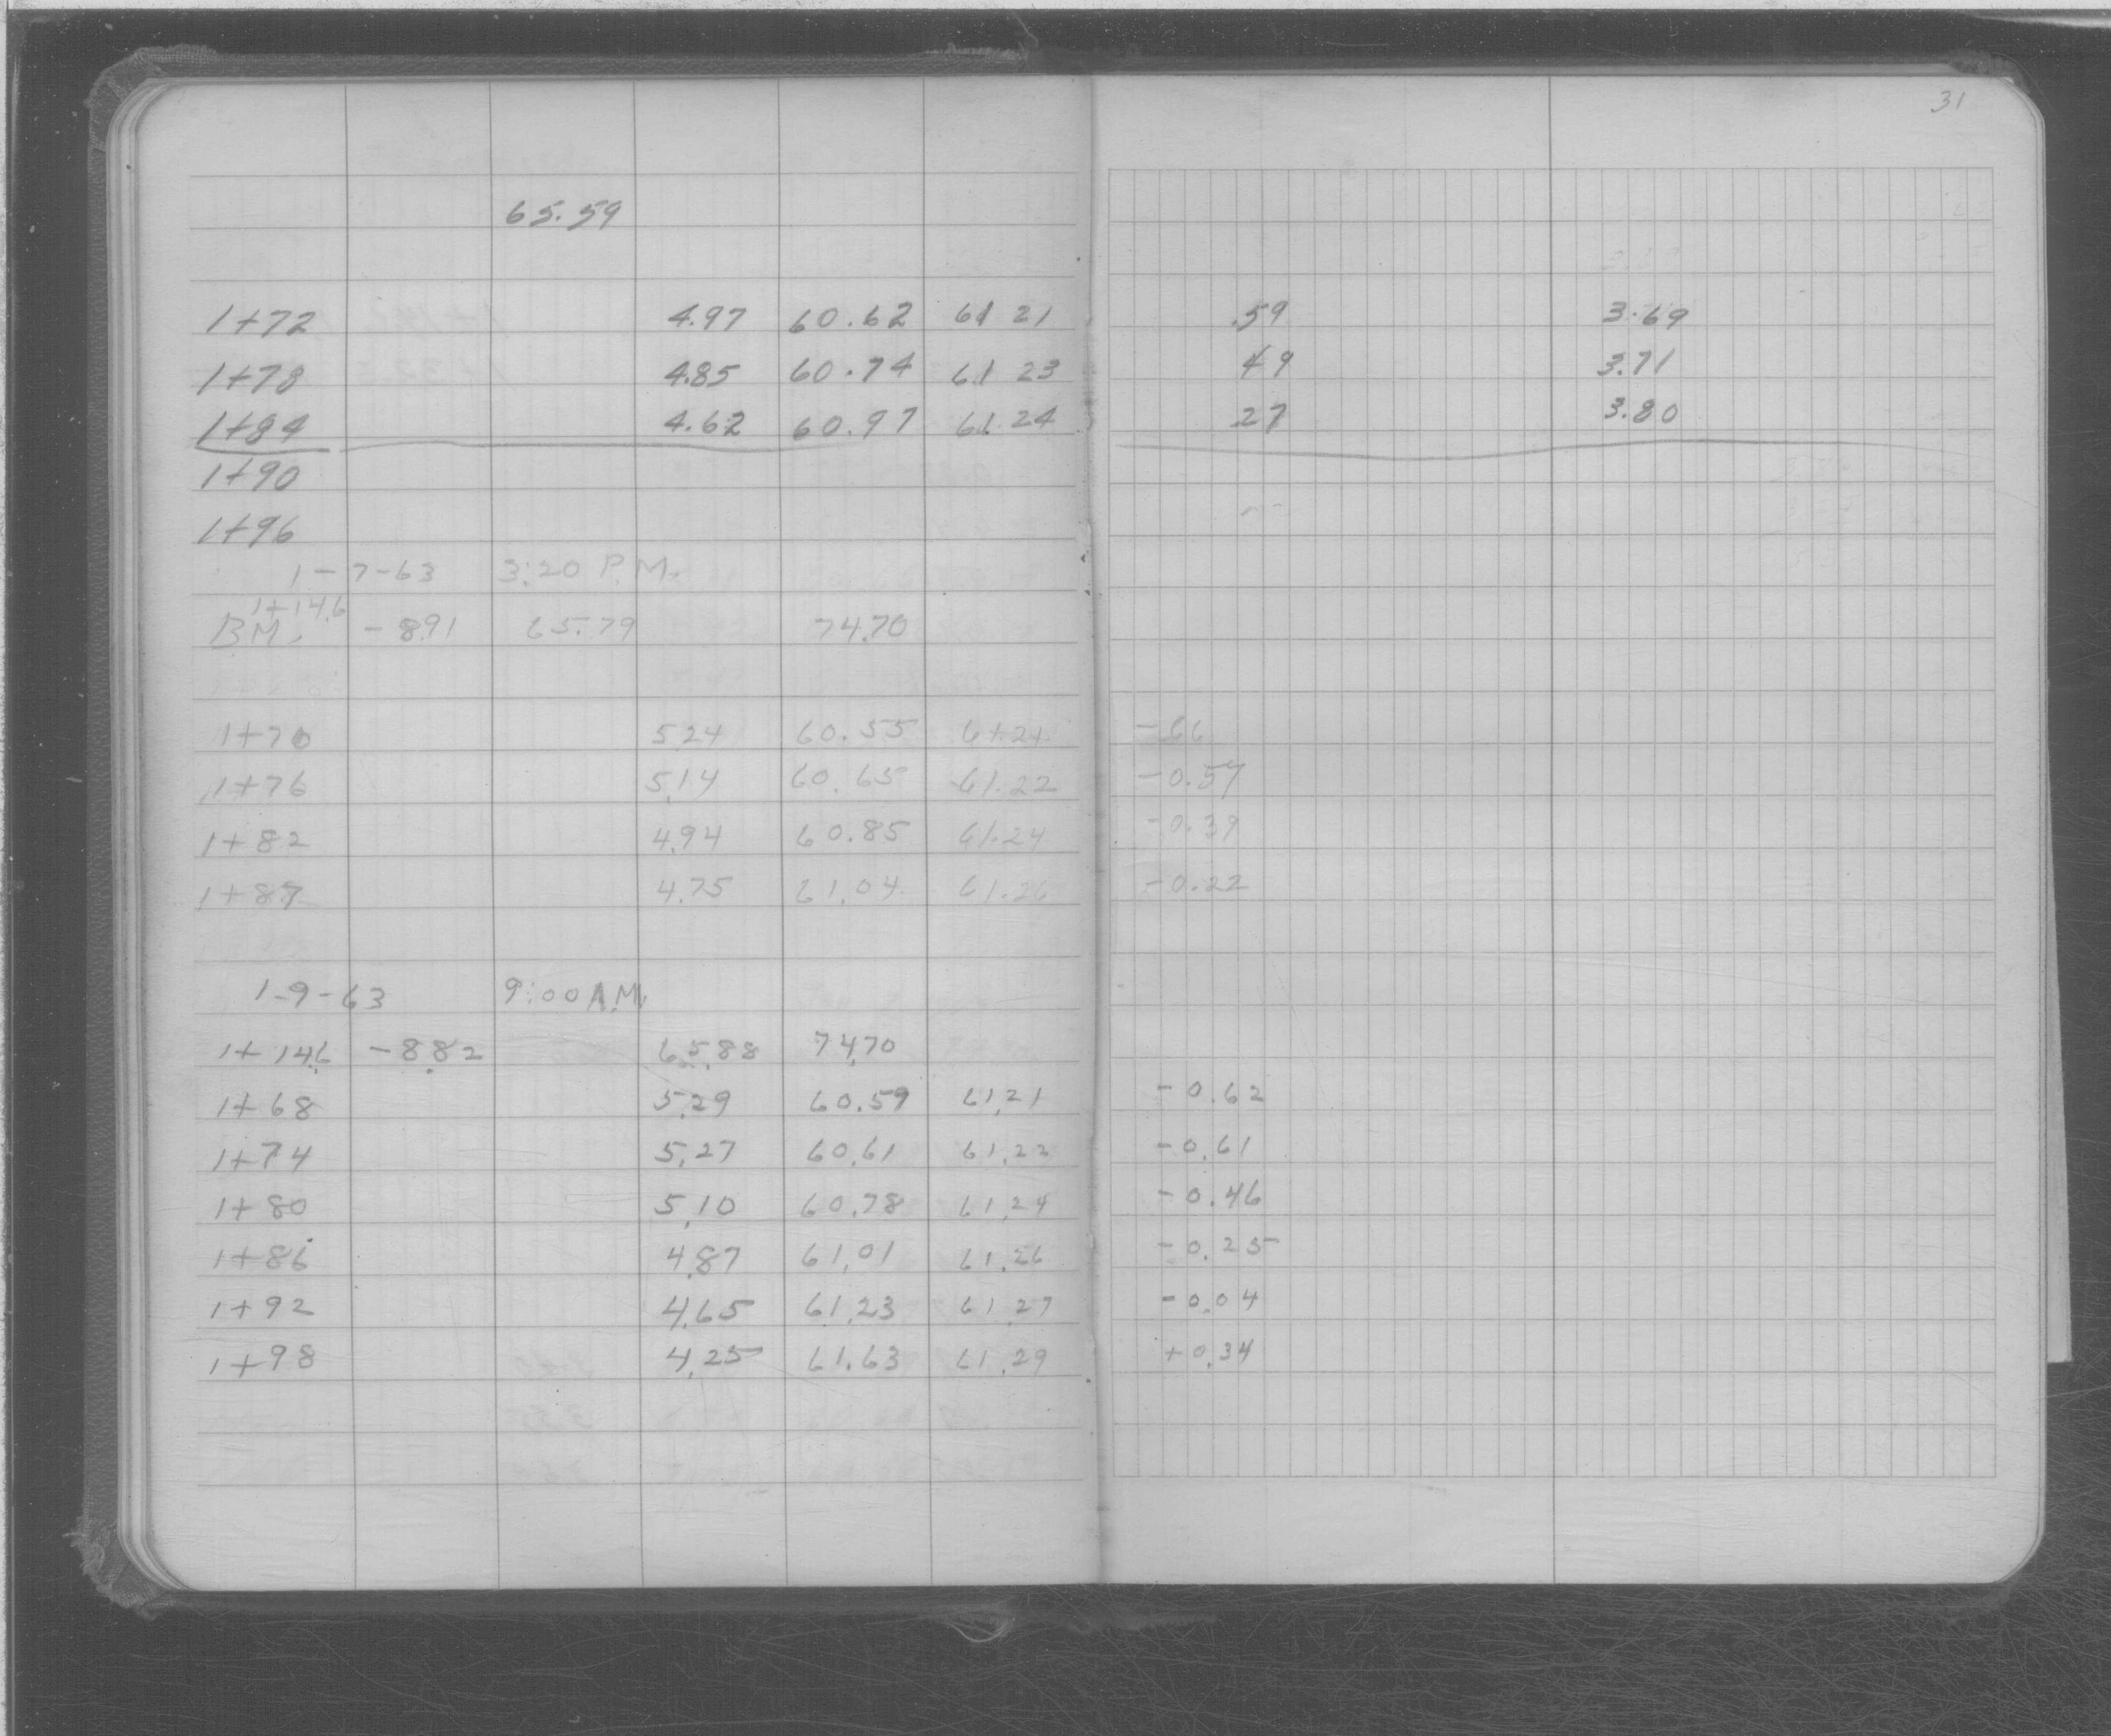 31
65.59
1+72 4.97 60.62 61 21 .59 3.69
1+78 4.85 60.74 61 23 49 3.71
1+84 4.62 60.97 61.24 27 3.80
1+90
1+96
1-7-63 3:20 P.M.
1+14.6
B.M. -8.91 65.79 74.70
1+70 5.24 60.55 -.66
1+76 5.14 60.65 61.22 -0.57
1+82 4.94 60.85 61.24 -0.39
1+87 4.75 61.04 61.26 -0.22
1-9-63 9:00 A.M.
1+14.6 -8.82 65.88 74.70
1+68 5.29 60.59 61.21 -0.62
1+74 5.27 60.61 61.22 -0.61
1+80 5.10 60.78 61.24 -0.46
1+86 4.87 61.01 61.26 -0.25
1+92 4.65 61.23 61.27 -0.04
1+98 4.25 61.63 61.29 +0.34